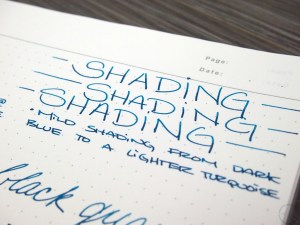 Page:
Date:
SHADING
SHADING
SHADING
MILD SHADING FROM DARK
BLUE TO A LIGHTER TURQUOISE
black